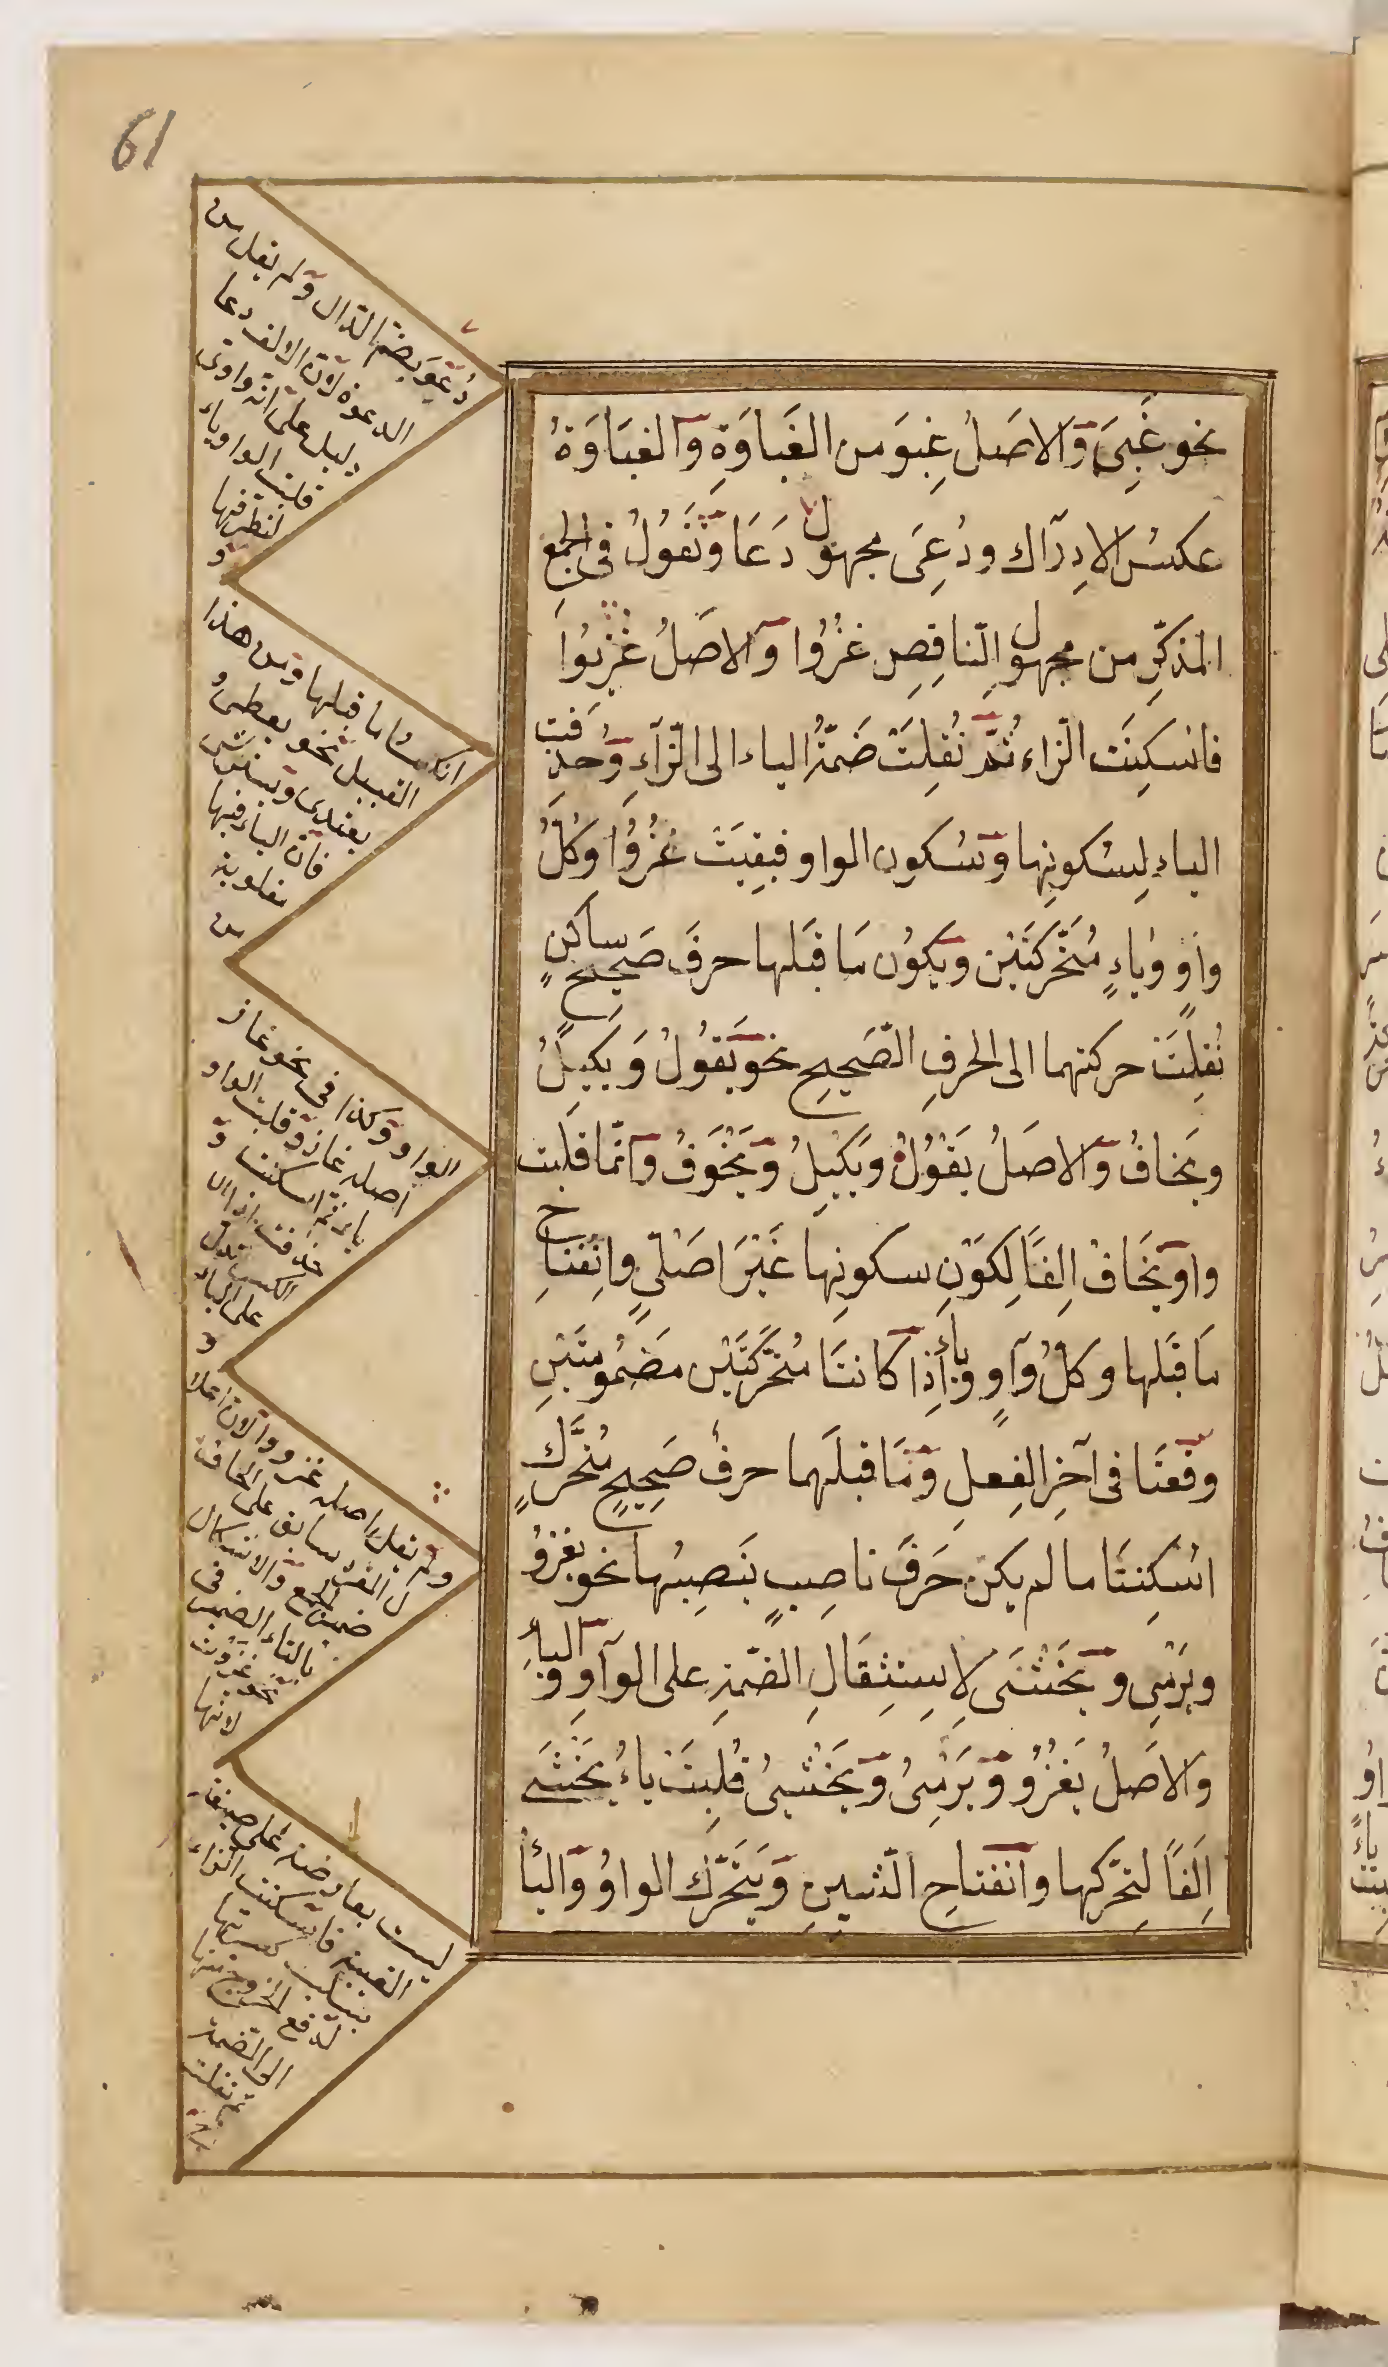 61
نحو غَبِىَ وَالاصَلُ غِبوَ من الغَباوَةِ وَالغبَاوَةُ
عكسُ الادِرَاك ودُعِىَ مجهول دَعَا وَتَقُولُ فى الجمع
المذكّرِ من مجهولِ النّاقِصِ غزُوُا وَالاصَلُ غُزِيُوا
فاسكِنَت الزّاء ثُمَّ نُقِلَتْ ضَمّةُ الياء الى الزّآءِ وَحُذِفَت
الياء لِسُكونِها وَسُكون الواو فبقِيَتْ غُزُوُا وَكُلُّ
واوٍ وياءٍ مُتَحّركَتَيْن وَيكَوُن مَا قبَلها حرفَ صَحيحٍ ساكنٍ
نُقلِتَ حركتهما الى الحرفِ الصَّحيحِ نحو يَقوُلُ وَيكيِلُ
ويَخافُ وَالاصَلُ يَقْوُلُ وَيَكْيِلُ وَيَخْوَفُ وَانّما قلبت
واو يَخَافُ الِفًا لِكَوْنِ سكونِها غَيْرَ اصَلىٍّ وانِفتاحِ
مَا قبَلها وكلُّ وَاوٍ وَياءٍ اذِا كانتَا مُتَحَّركَتَيْن مَضمُومتَيْنِ
وقعَتا فى آخرِ الفِعلِ وَمَا قبلَهما حرفُ صَحيحٍ مُتحَّركٍ
اسُكِنتَا ما لم يكن حَرفَ ناصِبٍ يَنصِبُها نحو يغزُو
ويَرْمىِ وَيَخْشَى لاِستِثِقَالِ الضّمّةِ على الوآوِ وَالياءِ
وَالاصَلُ يَغزُوُ وَيَرَمْىُ وَيَخْشَىُ قُلِبَتْ ياءُ يَخْشَى
اَلِفاً لتحَّركها وانفتاحِ الشّينِ وَيتَحّرك الواوُ وَاليأ
دُعِوَ بضمّ الدّال وَلم نقل من
الدعوة لانّ الالف دعا
دليل على انّه واوىّ
قلبت الواو ياء
لتطرفها
و
انكسار ما قبلها وَمن هذا
القبيل نحو يعطى
يعتدى وَيسترشى
فانّ الياء فيها
مقلوبة
من
الواو وَكذا فى نحو غاز
اصله غازو قلبت الواو
ياء ثمّ اسكنت وَ
حذفت
على الياء
و
وَلم نقل اصله غزووا لانّ
المفرد سابق على
الجمع
نحو غزوت
لانها
ليست بعارضة على صيغة
الغيبة فاسكنت الزاء
كسرتها
لدفع الخروج منها
الى الضمّة
ثم نقلت